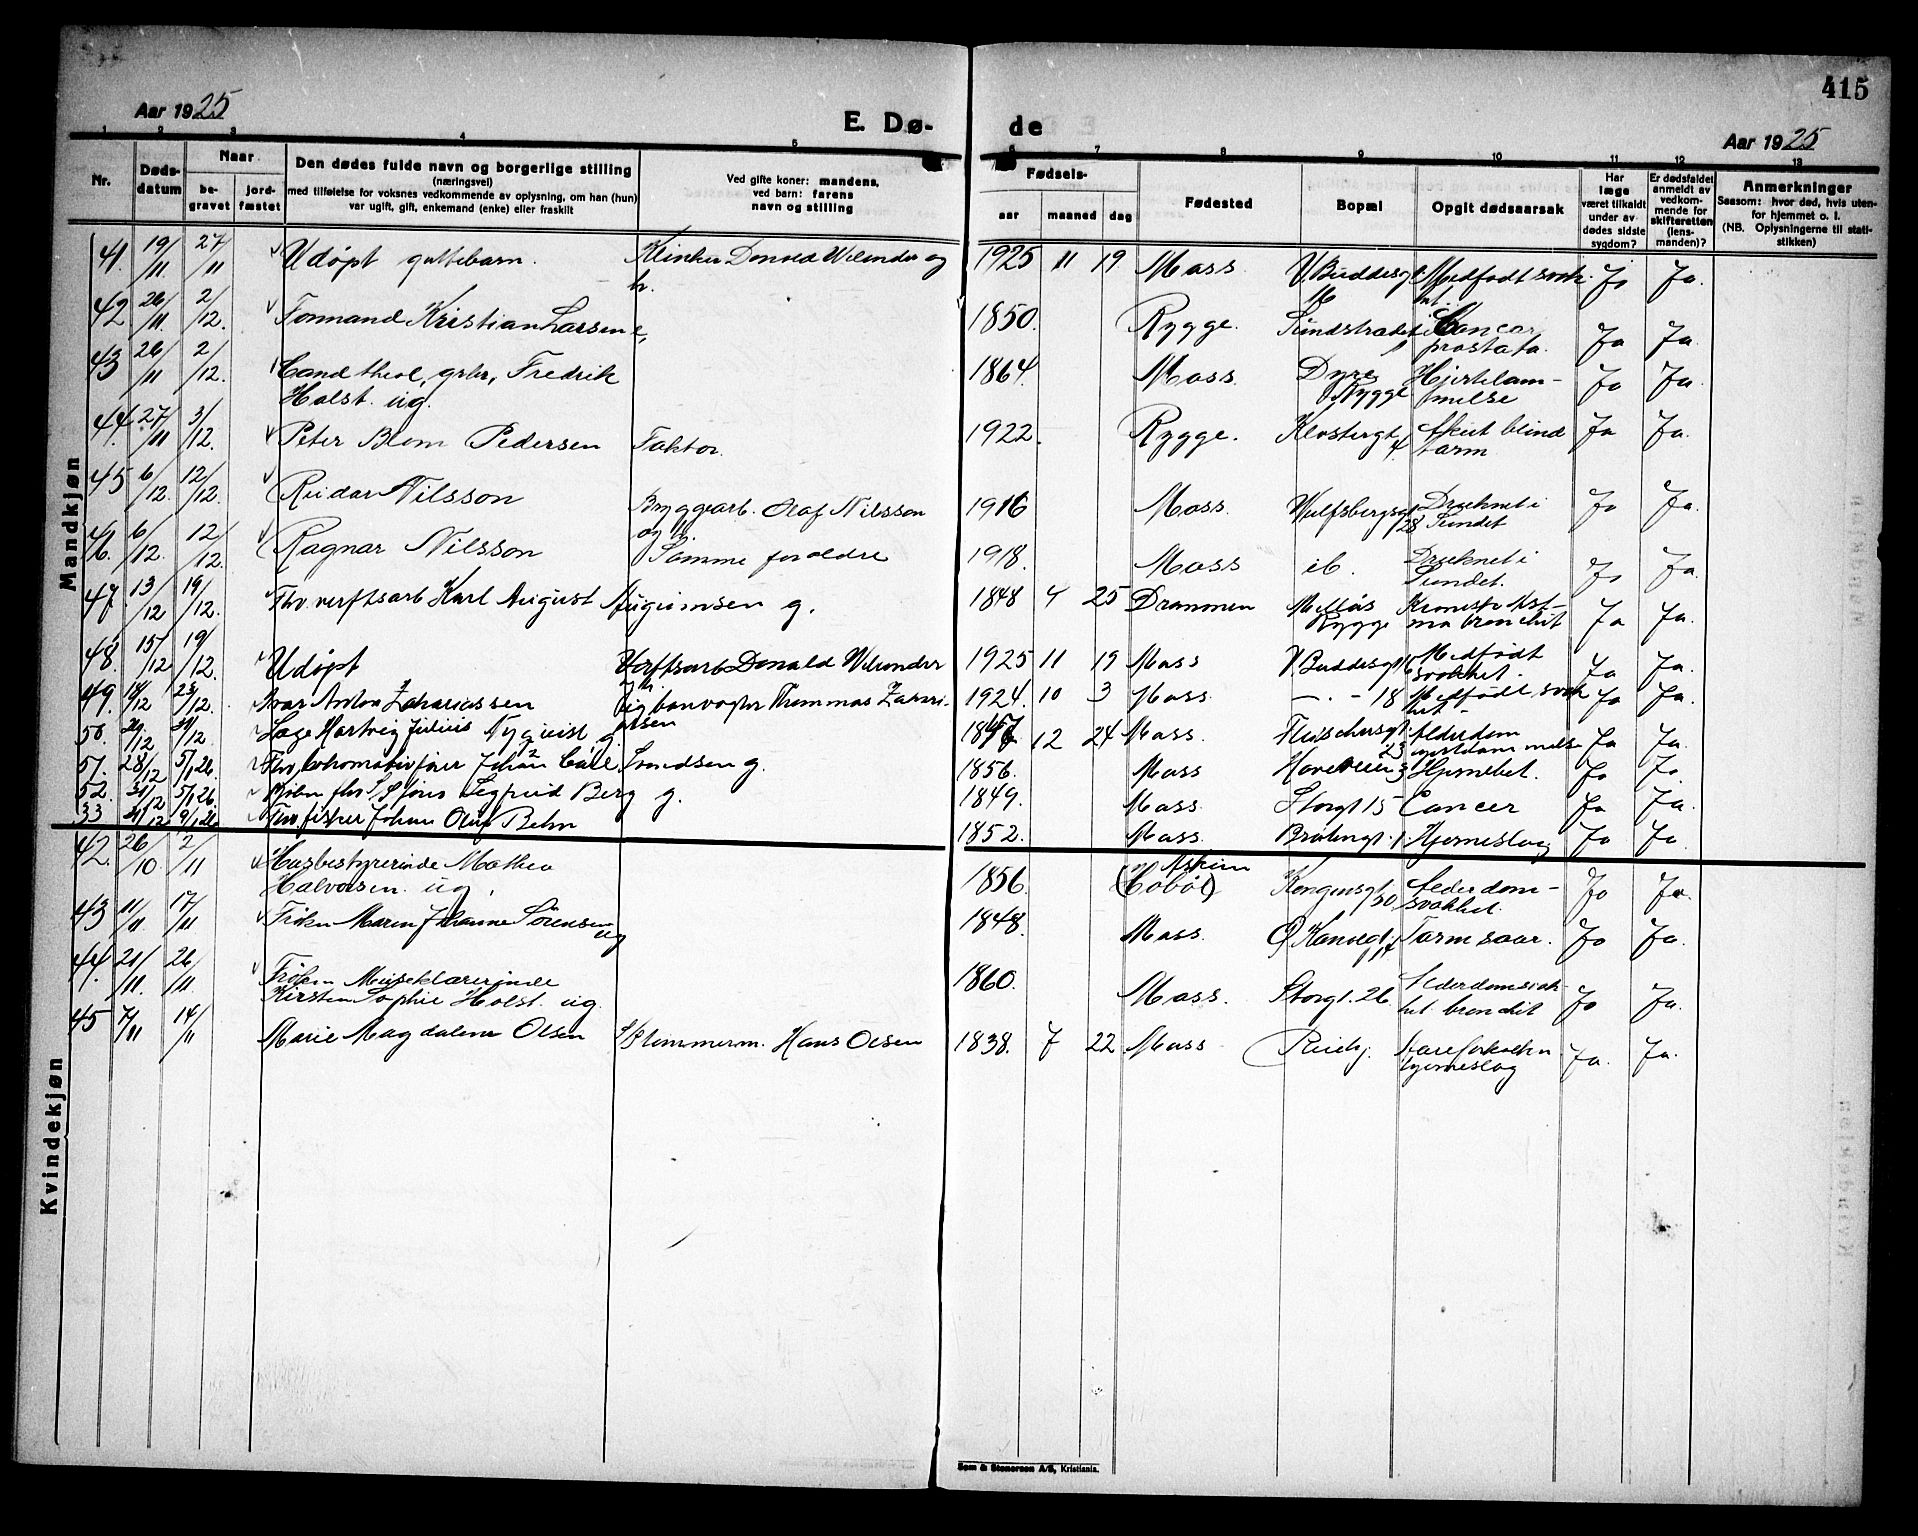 415
Aar 1925
E. Dø-
de
Aar 1925
1 2 3 4 5 6 7 8 9 10 11 12 13
Nr.
Døds-
datum
Naar
be-
gravet
jord-
fæstet
Den dødes fulde navn og borgerlige stilling
(næringsvei)
med tilføielse for voksnes vedkommende av oplysning, om han (hun)
var ugift, gift, enkemand (enke) eller fraskilt
Ved gifte koner: mandens,
ved barn: farens
navn og stilling
Fødsels-
aar
maaned
dag
Fødested
Bopæl
Opgit dødsaarsak
Har
læge
været tilkaldt
under av-
dødes sidste
sygdom?
Er dødsfaldet
anmeldt av
vedkom-
mende for
skifteretten
(lens-
manden)?
Anmerkninger
Saasom: hvor død, hvis uten-
for hjemmet o. l.
(NB. Oplysningerne til stati-
stikken)
Mandkjøn
41. 19/11 27/11 Udøpt guttebarn. Klinker Donald Wilunder og h. 1925 11 19 Moss V. Buddesgt. 16 Medfødt svak- het. Ja Ja.
42 26/11. 2/12. Formand Kristian Larsen e, 1850. Rygge. Sundstrædet 1 Cancer prostata. Ja Ja.
43 26/11 2/12. Cand theol, Fredrik
Holst. ug. 1864. Moss. Dyre Rygge Hjertelam- melse Ja Ja.
44. 27/11 3/12. Peter Blom Pedersen Faktor 1922. Rygge. Klostergt 4 Akut blind tarm Ja Ja.
45 6/12. 12/12. Reidar Nilsson Byggearb. Olaf Nilsson og h. 1916 Moss. Wulfsbergsgt 28 Druknet i Sundet Ja Ja.
46 6/12. 12/12. Ragnar Nilsson Samme forældre 1918. Moss ib. Druknet i Sundet. Ja Ja.
47. 13/12 19/12. Fhv. verftsarb Karl August g. 1848 4 25 Drammen Melløs Rygge Kronisk Ast- ma bronchit Ja Ja.
48. 15/12 19/12. Udøpt Verftsarb Donald Wilunder 1925 11 19 Moss V. Buddesgt 16 Medfødt svakhet. Ja Ja.
49. 18/12 23/12. Ivar Anton Zahariassen Thommas Zahari- assen 1924. 10 3 Moss. — . – 18 Medfødt svak het - Ja Ja.
50. 29/12 31/12. Hartvig Julius Nyquist g. 1847 12 24 Moss. 23 Alderdom Ja Ja.
51. 28/12 5/1 26. Fhv. lokomotivfører Johan Carl Svendsen g. 1856. Moss Ja Ja.
52. 31/12 5/1 26. Sigfrid Berg g. 1849. Moss. Storgt 15 Cancer Ja Ja.
53 31/12. 9/1 26 Fhv. fisker Johan Oluf Behn 1852. Moss. Hjerneslag Ja Ja
Kvindekjøn
42. 26/10. 2/11 Husbestyrerinde Mathea
Halvorsen. ug. 1856. Askim (Hobøl) Kongensgt 30 Alderdom- svakhet. Ja Ja.
43 11/11 17/11 Frøken Maren Johanne Sørensen ug 1848. Moss. Ø Kanalgt. Tarmsaar. Ja Ja.
44. 21/11. 26/11. Frøken Musiklærerinde
Kirsten Sophie Holst. ug. 1860. Moss. Storgt. 26 Alderdomsvak- het. bronchit Ja Ja.
45 7/11 14/11 Marie Magdalene Olsen Hans Olsen 1838. 7 22 Moss hjerneslag Ja. Ja.
Sem & Stenersen A/S, Kristiania.